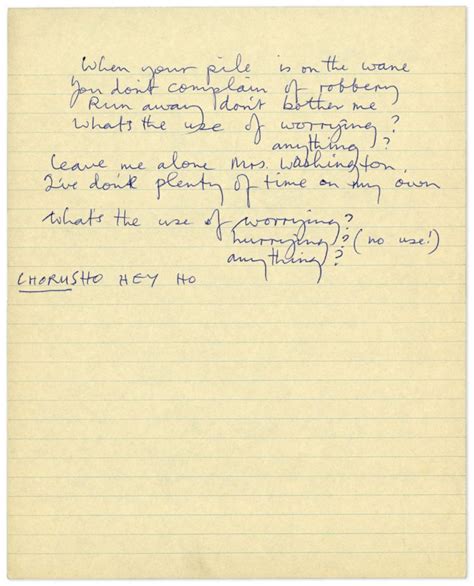 When your pile is on the wane
You don't complain of robbery
Run away don't bother me
Whats the use of worrying?
anything?
Leave me alone Mrs. Washington,
I've done plenty of time on my own
Whats the use of worrying?
hurrying? (no use!)
anything?
CHORUS HO HEY HO